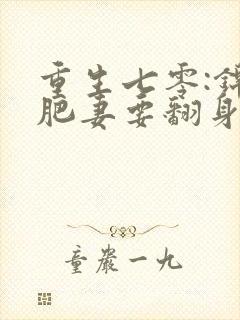 重生七零:锦
肥妻要翻身
童岩一九